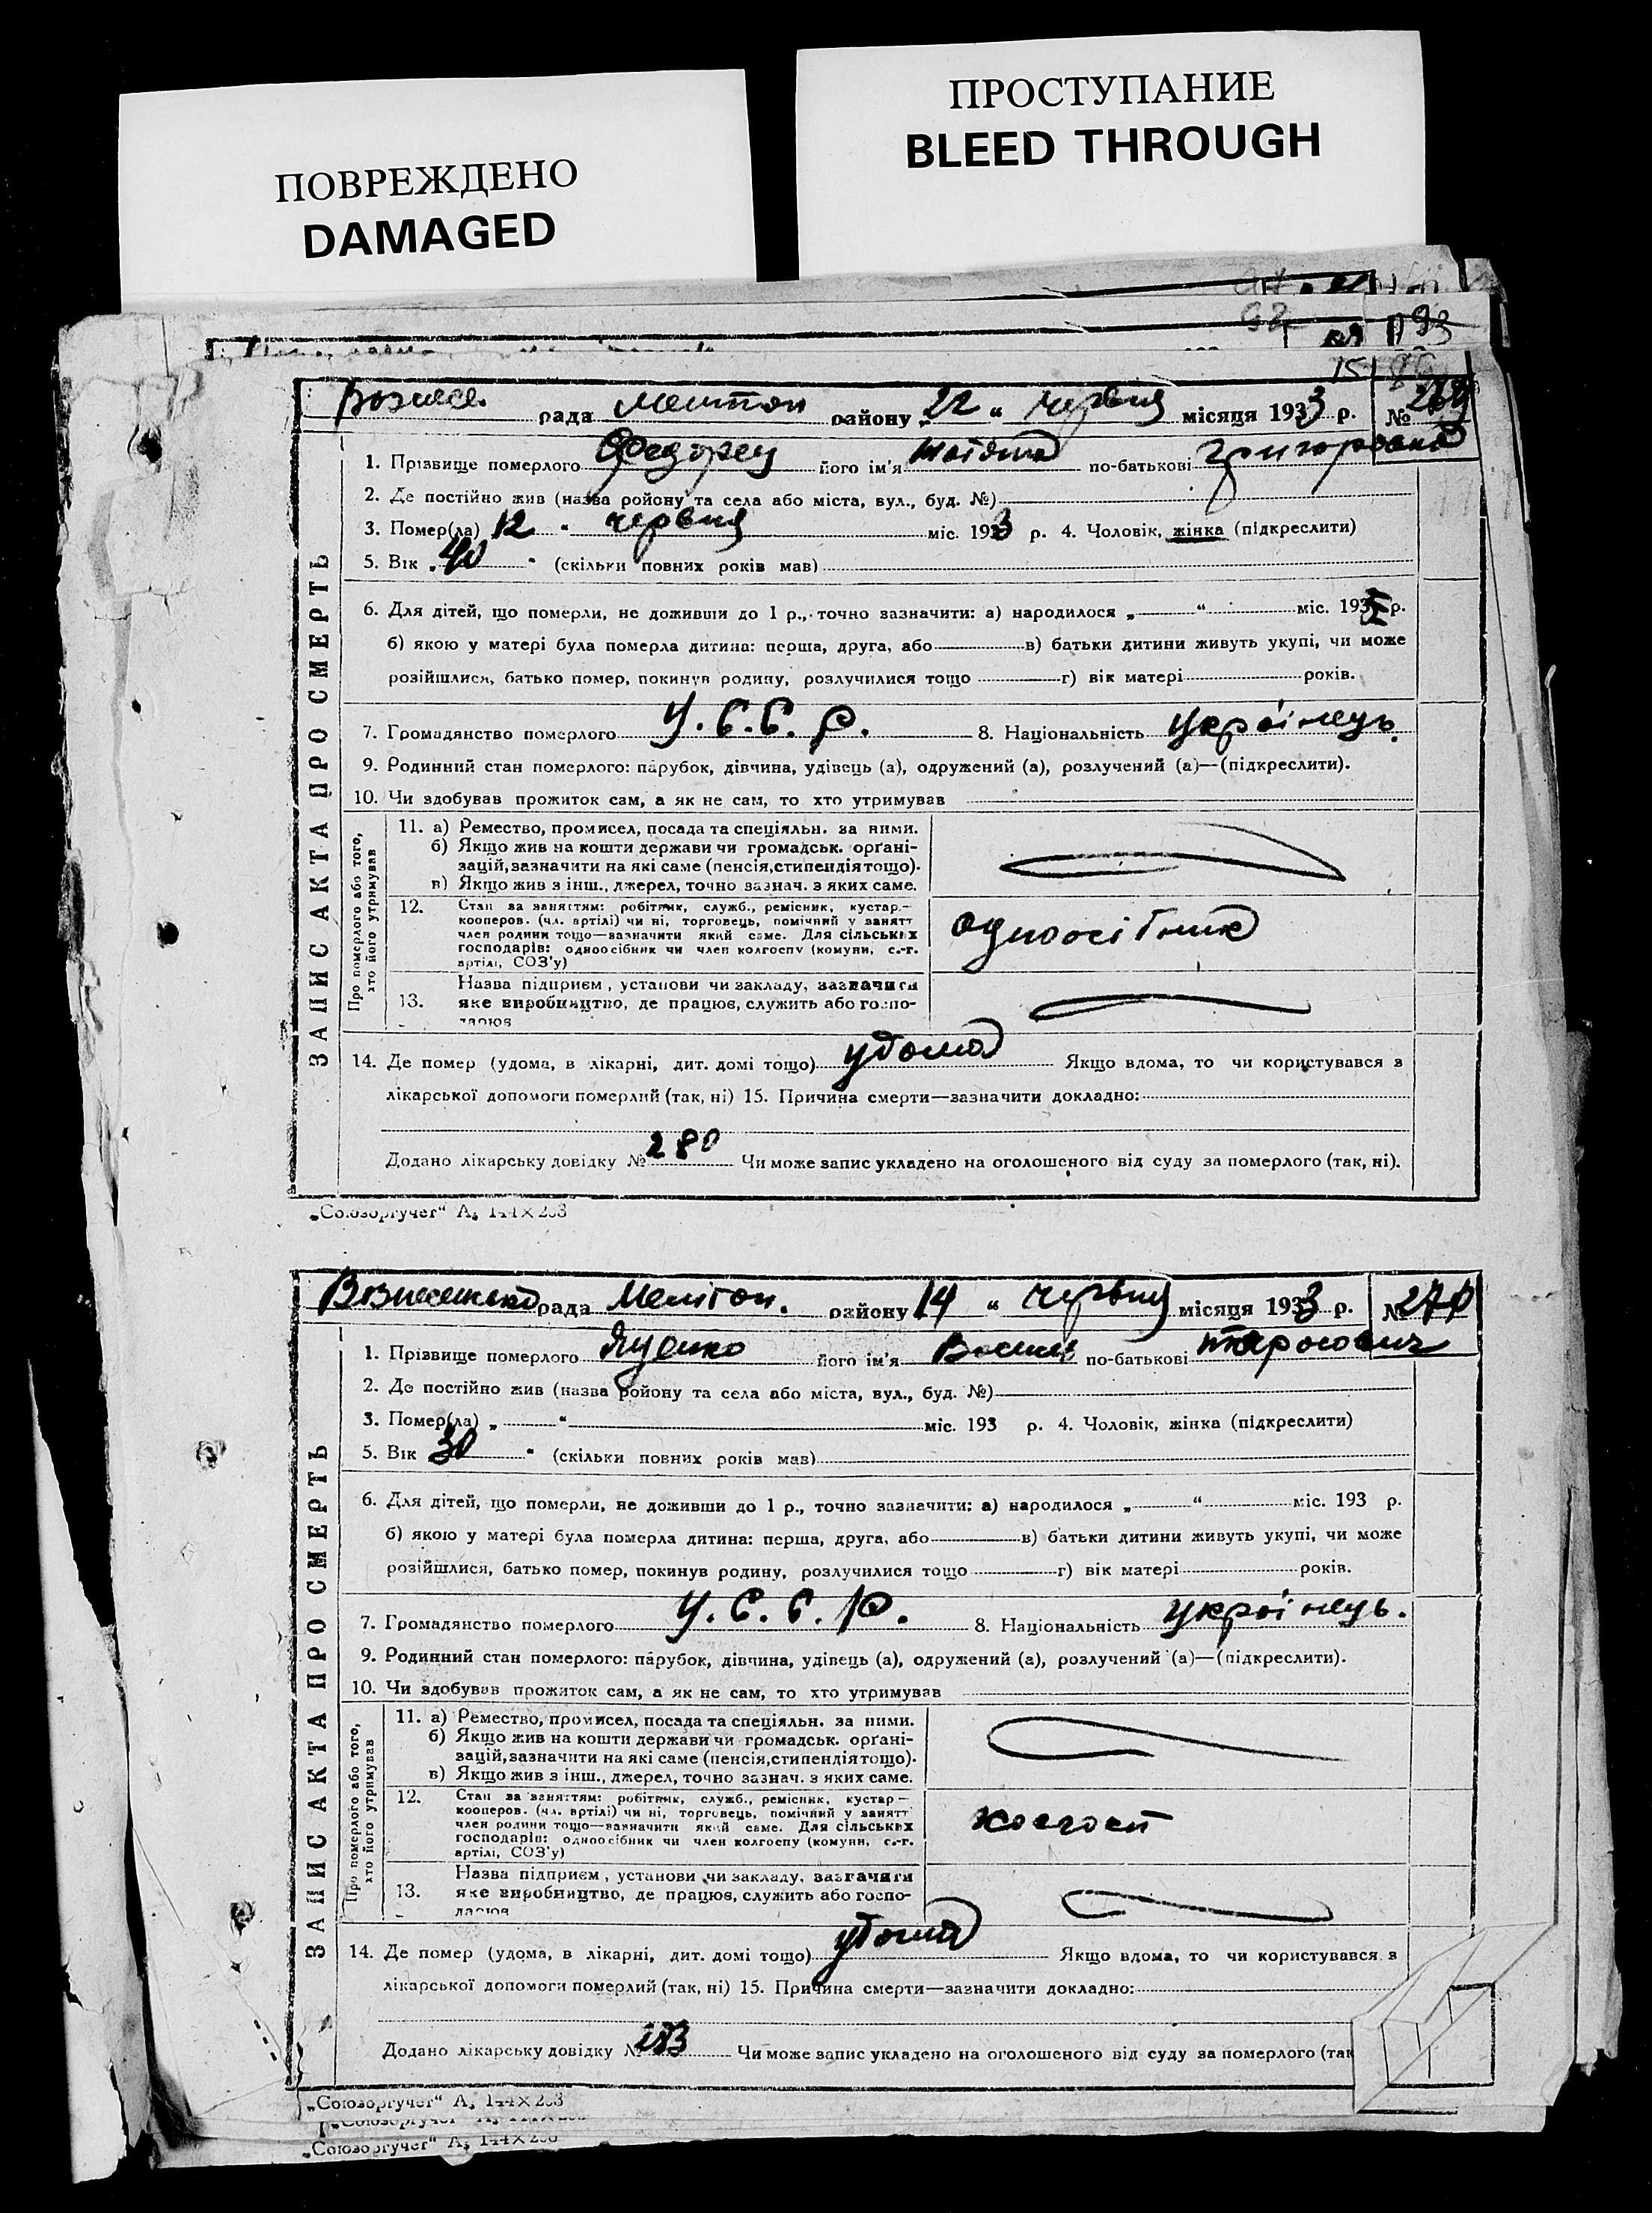 ПОВРЕЖДЕНО
DAMAGED
ПРОСТУПАНИЕ
BLEED THROUGH
92
93
15
Вознесе. рада Мелітоп району „22 “ червня місяця 1933 р. № 269
ЗАПИС АКТА ПРО СМЕРТЬ
1. Прізвище померлого Федорец його ім'я по-батькові Григоровна
2. Де постійно жив (назва району та села або міста, вул., буд. №)
3. Помер(ла) 12 “ червня міс. 1933 р. 4. Чоловік, жінка (підкреслити)
5. Вік 40 “ (скільки повних років мав)
6. Для дітей, що померли, не доживши до 1 р., точно зазначити: а) народилося „ “ міс. 193 р.
б) якою у матері була померла дитина: перша, друга, або в) батьки дитини живуть укупі, чи може
розійшлися, батько помер, покинув родину, розлучилися тощо г) вік матері років.
7. Громадянство померлого У.С.С.Р. 8. Національність українець.
9. Родинний стан померлого: парубок, дівчина, удівець (а), одружений (а), розлучений (а)—(підкреслити).
10. Чи здобував прожиток сам, а як не сам, то хто утримував
Про померлого або того,
хто його утримував
11. а) Ремество, промисел, посада та спеціяльн. за ними.
б) Якщо жив на кошти держави чи громадськ. орґані-
зацій, зазначити на які саме (пенсія, стипендія тощо).
в) Якщо жив з інш., джерел, точно зазнач. з яких саме.
12. Стан за заняттям: робітник, служб., ремісник, кустар—
кооперов. (чл. артілі) чи ні, торговець, помічний у занятт
член родини тощо—зазначити який саме. Для сільських
господарів: одноосібник чи член колгоспу (комуни, с.-г.
артілі, СОЗ'у)
одноосібник
Назва підприєм, установи чи закладу, зазначити
13. яке виробництво, де працює, служить або госпо-
дарює
14. Де помер (удома, в лікарні, дит. домі тощо) удома Якщо вдома, то чи користувався з
лікарської допомоги померлий (так, ні) 15. Причина смерти—зазначити докладно:
Додано лікарську довідку № 280 Чи може запис укладено на оголошеного від суду за померлого (так, ні).
„Союзоргучет“ А₅ 144×203
Вознесенско рада Мелітоп. району 14 “ червня місяця 1933 р. № 270
ЗАПИС АКТА ПРО СМЕРТЬ
1. Прізвище померлого Яценко його ім'я Василь по-батькові Тарасович
2. Де постійно жив (назва району та села або міста, вул., буд. №)
3. Помер(ла) „ “ міс. 193 р. 4. Чоловік, жінка (підкреслити)
5. Вік 30 “ (скільки повних років мав)
6. Для дітей, що померли, не доживши до 1 р., точно зазначити: а) народилося „ “ міс. 193 р.
б) якою у матері була померла дитина: перша, друга, або в) батьки дитини живуть укупі, чи може
розійшлися, батько помер, покинув родину, розлучилися тощо г) вік матері років.
7. Громадянство померлого У.С.С.Р. 8. Національність українець.
9. Родинний стан померлого: парубок, дівчина, удівець (а), одружений (а), розлучений (а)—(підкреслити).
10. Чи здобував прожиток сам, а як не сам, то хто утримував
Про померлого або того,
хто його утримував
11. а) Ремество, промисел, посада та спеціяльн. за ними.
б) Якщо жив на кошти держави чи громадськ. орґані-
зацій, зазначити на які саме (пенсія, стипендія тощо).
в) Якщо жив з інш., джерел, точно зазнач. з яких саме.
12. Стан за заняттям: робітник, служб., ремісник, кустар—
кооперов. (чл. артілі) чи ні, торговець, помічний у занятт
член родини тощо—зазначити який саме. Для сільських
господарів: одноосібник чи член колгоспу (комуни, с.-г.
артілі, СОЗ'у)
колгосп
Назва підприєм, установи чи закладу, зазначити
13. яке виробництво, де працює, служить або госпо-
дарює
14. Де помер (удома, в лікарні, дит. домі тощо) удома Якщо вдома, то чи користувався з
лікарської допомоги померлий (так, ні) 15. Причина смерти—зазначити докладно:
Додано лікарську довідку № Чи може запис укладено на оголошеного від суду за померлого (так
„Союзоргучет“ А₅ 144×203
„Союзоргучет“ А₅ 144×203
„Союзоргучет“ А₅ 144×203